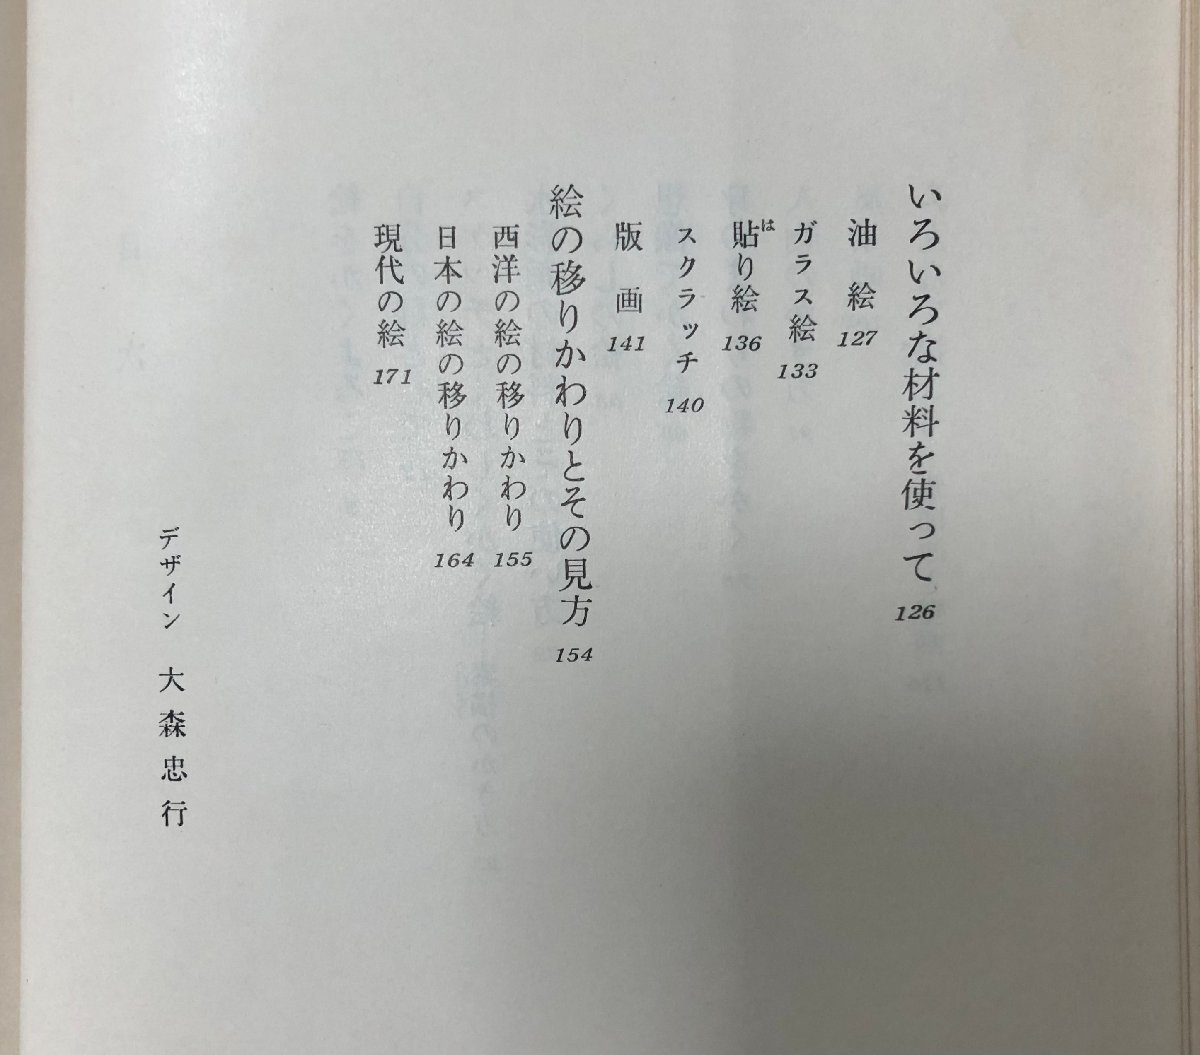 いろいろな材料を使って 126
油絵 127
ガラス絵 133
貼り絵 136
は
スクラッチ 140
版画 141
絵の移りかわりとその見方 154
西洋の絵の移りかわり 155
日本の絵の移りかわり 164
現代の絵 171
デザイン 大森忠行